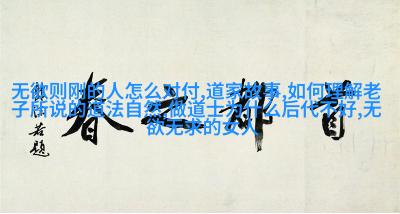 无欲则刚的人怎么对付,道家故事,如何理解老
子所说的道法自然,做道士为什么后代不好,无
欲无求的女人
首都之春
若题